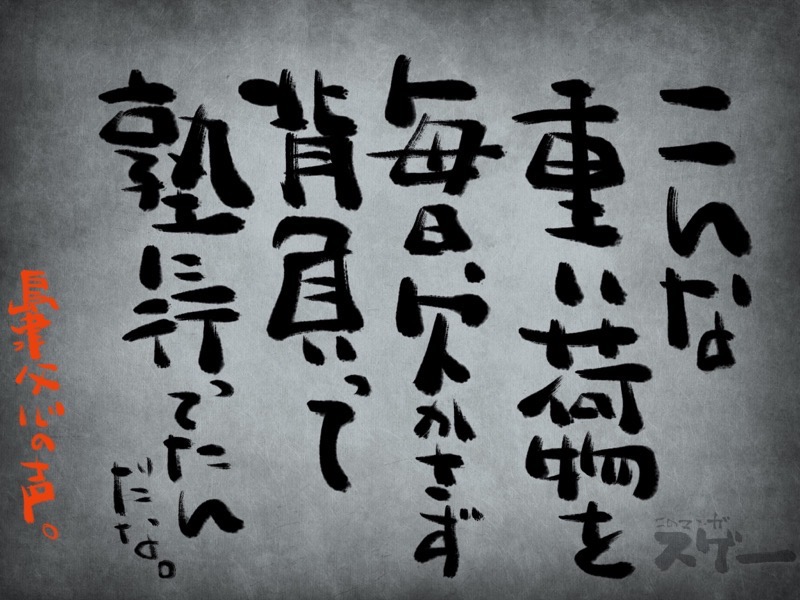 こんな
重い荷物を
毎日、欠かさず
背負って
塾に行ってたん
だな。
父 心の声。
このマンガ
スゲー